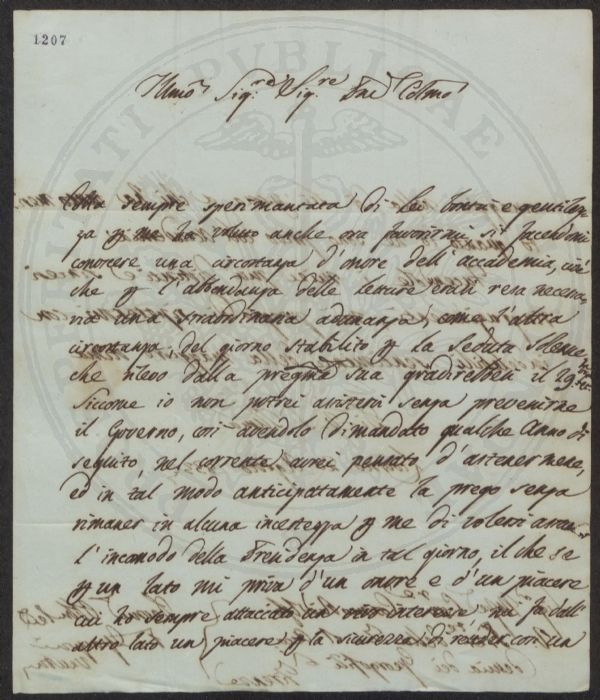 1207
Illmo Sigre Sigre Pne Colmo
sempre sperimentata di Lei bontà e gentilez
za p me ha voluto anche ora favorirmi si facendomi
conoscere una circostanza d'onore dell'accademia, cioè
che p l'abbondanza delle letture erasi resa necessa
ria una straordinaria adunanza, come l'altra
circostanza, del giorno stabilito p la seduta Solenne
che rilevo dalla pregma sua gradirebbesi il 29
Siccome io non potrei assistervi senza prevenirne
il Governo, così avendolo dimandato qualche Anno di
seguito, nel corrente avrei pensato d'astenermene,
ed in tal modo anticipatamente la prego senza
rimaner in alcuna incertezza p me di volersi
l'incomodo della Presidenza in tal giorno, il che se
p un lato mi priva d'un onore e d'un piacere
cui ho sempre attaccato un vivo interesse, mi fa dall'
altro lato un piacere p la sicurezza di con un